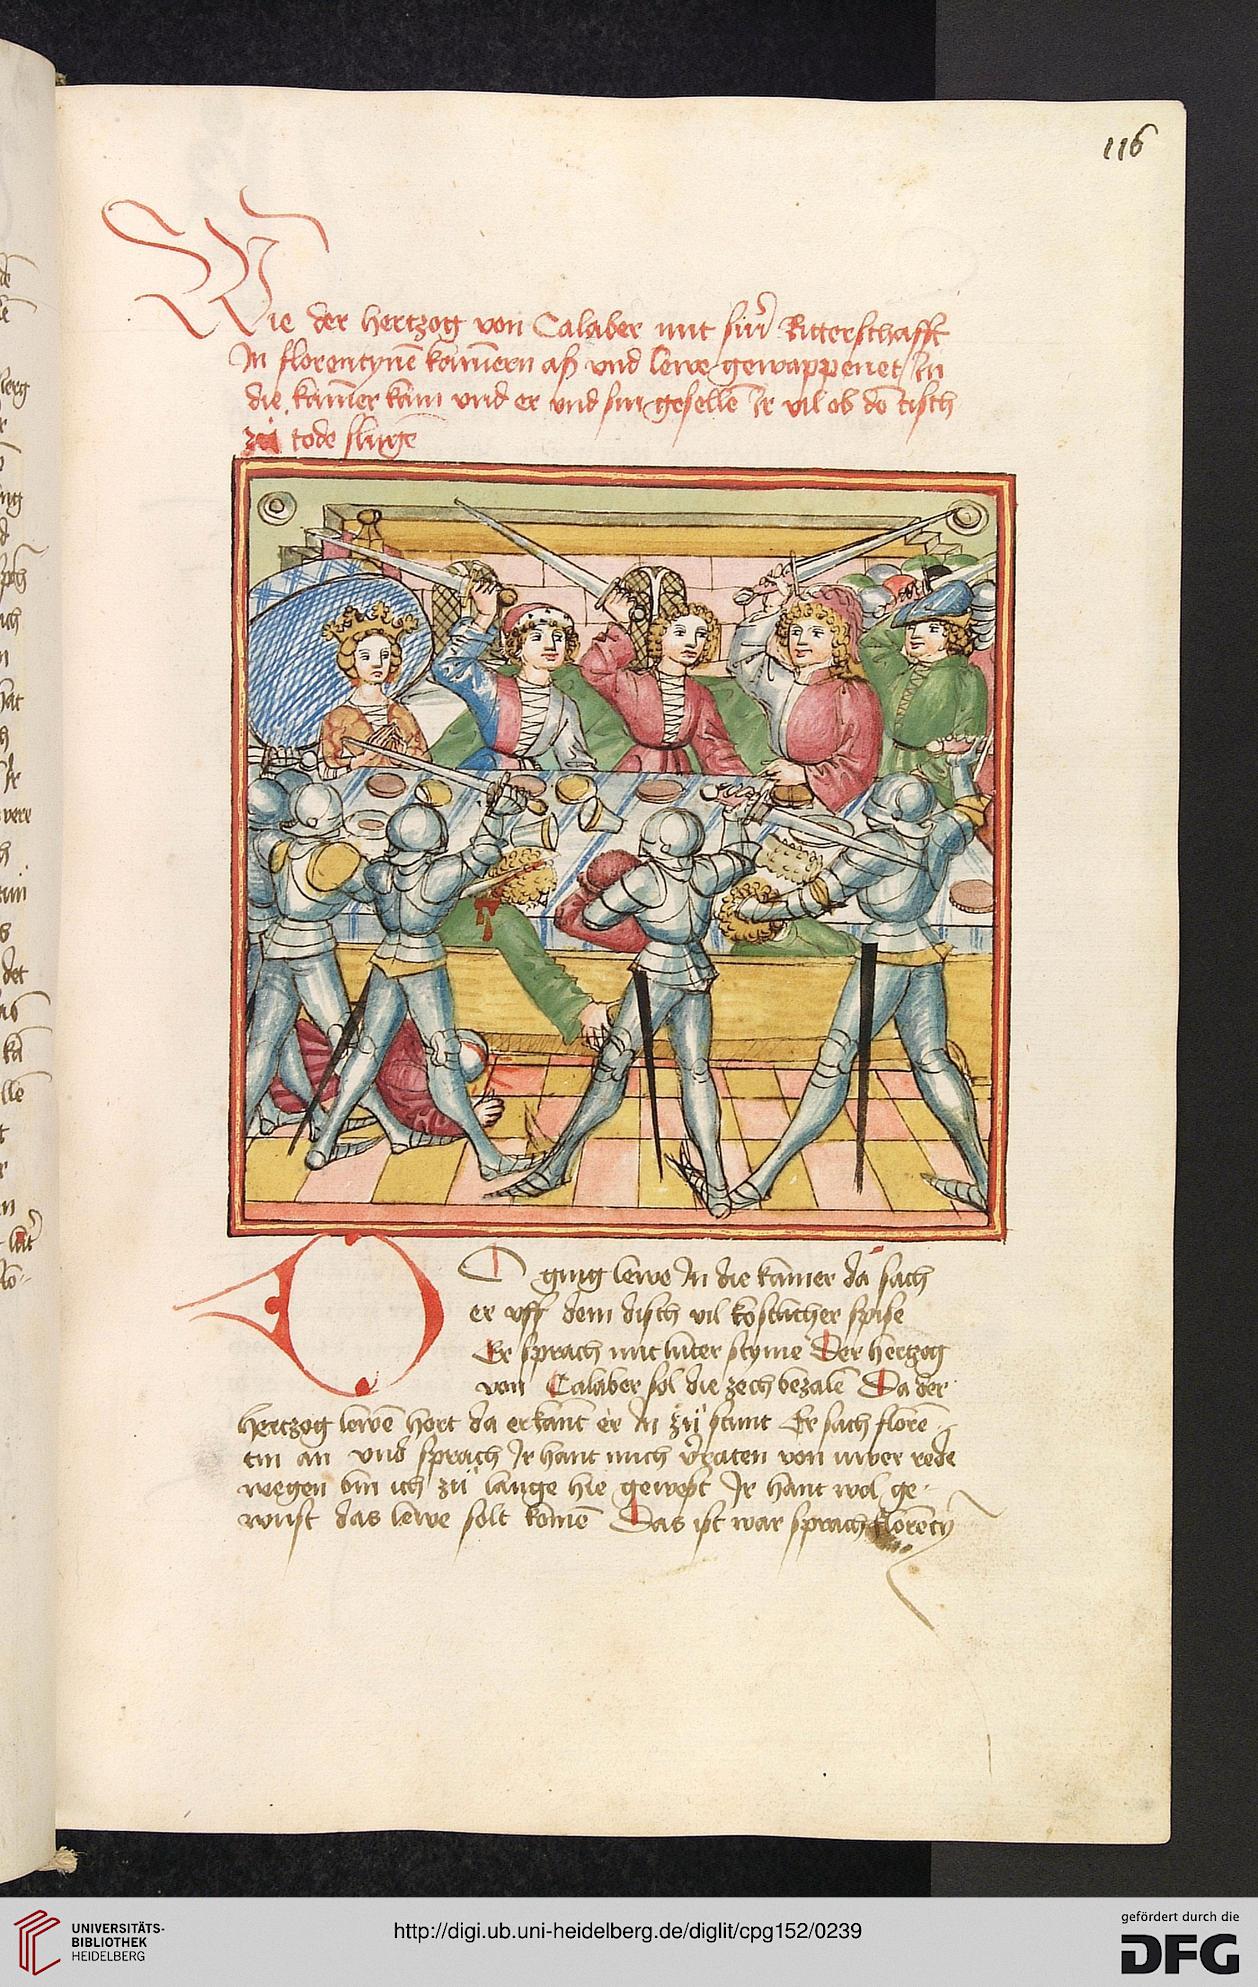 116
Wie der hertzog von Calaber mit sinr̄ Ritterschafft
In florentynē kamern aß vnd lewe gewappenet In
die kamer kam vnd er vnd sin gesellē Ir vil ob dē tisch
zü tode slugē
DO ging lewe In die kamer da sach
er vff dem disch vil kostlicher spise
Er sprach mit luter styme Der hertzog
von Calaber sol die zech bezalē Da der
hertzog lewē hort da erkant er In zü stunt Er sach florē-
tin an vnd sprach Ir hant mich v̄raten von uwer rede
wegen bin ich zü lange hie gewest Ir hant wol ge-
wust das lewe solt komē Das ist war sprach florēty
UNIVERSITÄTS-
BIBLIOTHEK
HEIDELBERG
http://digi.ub.uni-heidelberg.de/diglit/cpg152/0239
gefördert durch die
DFG